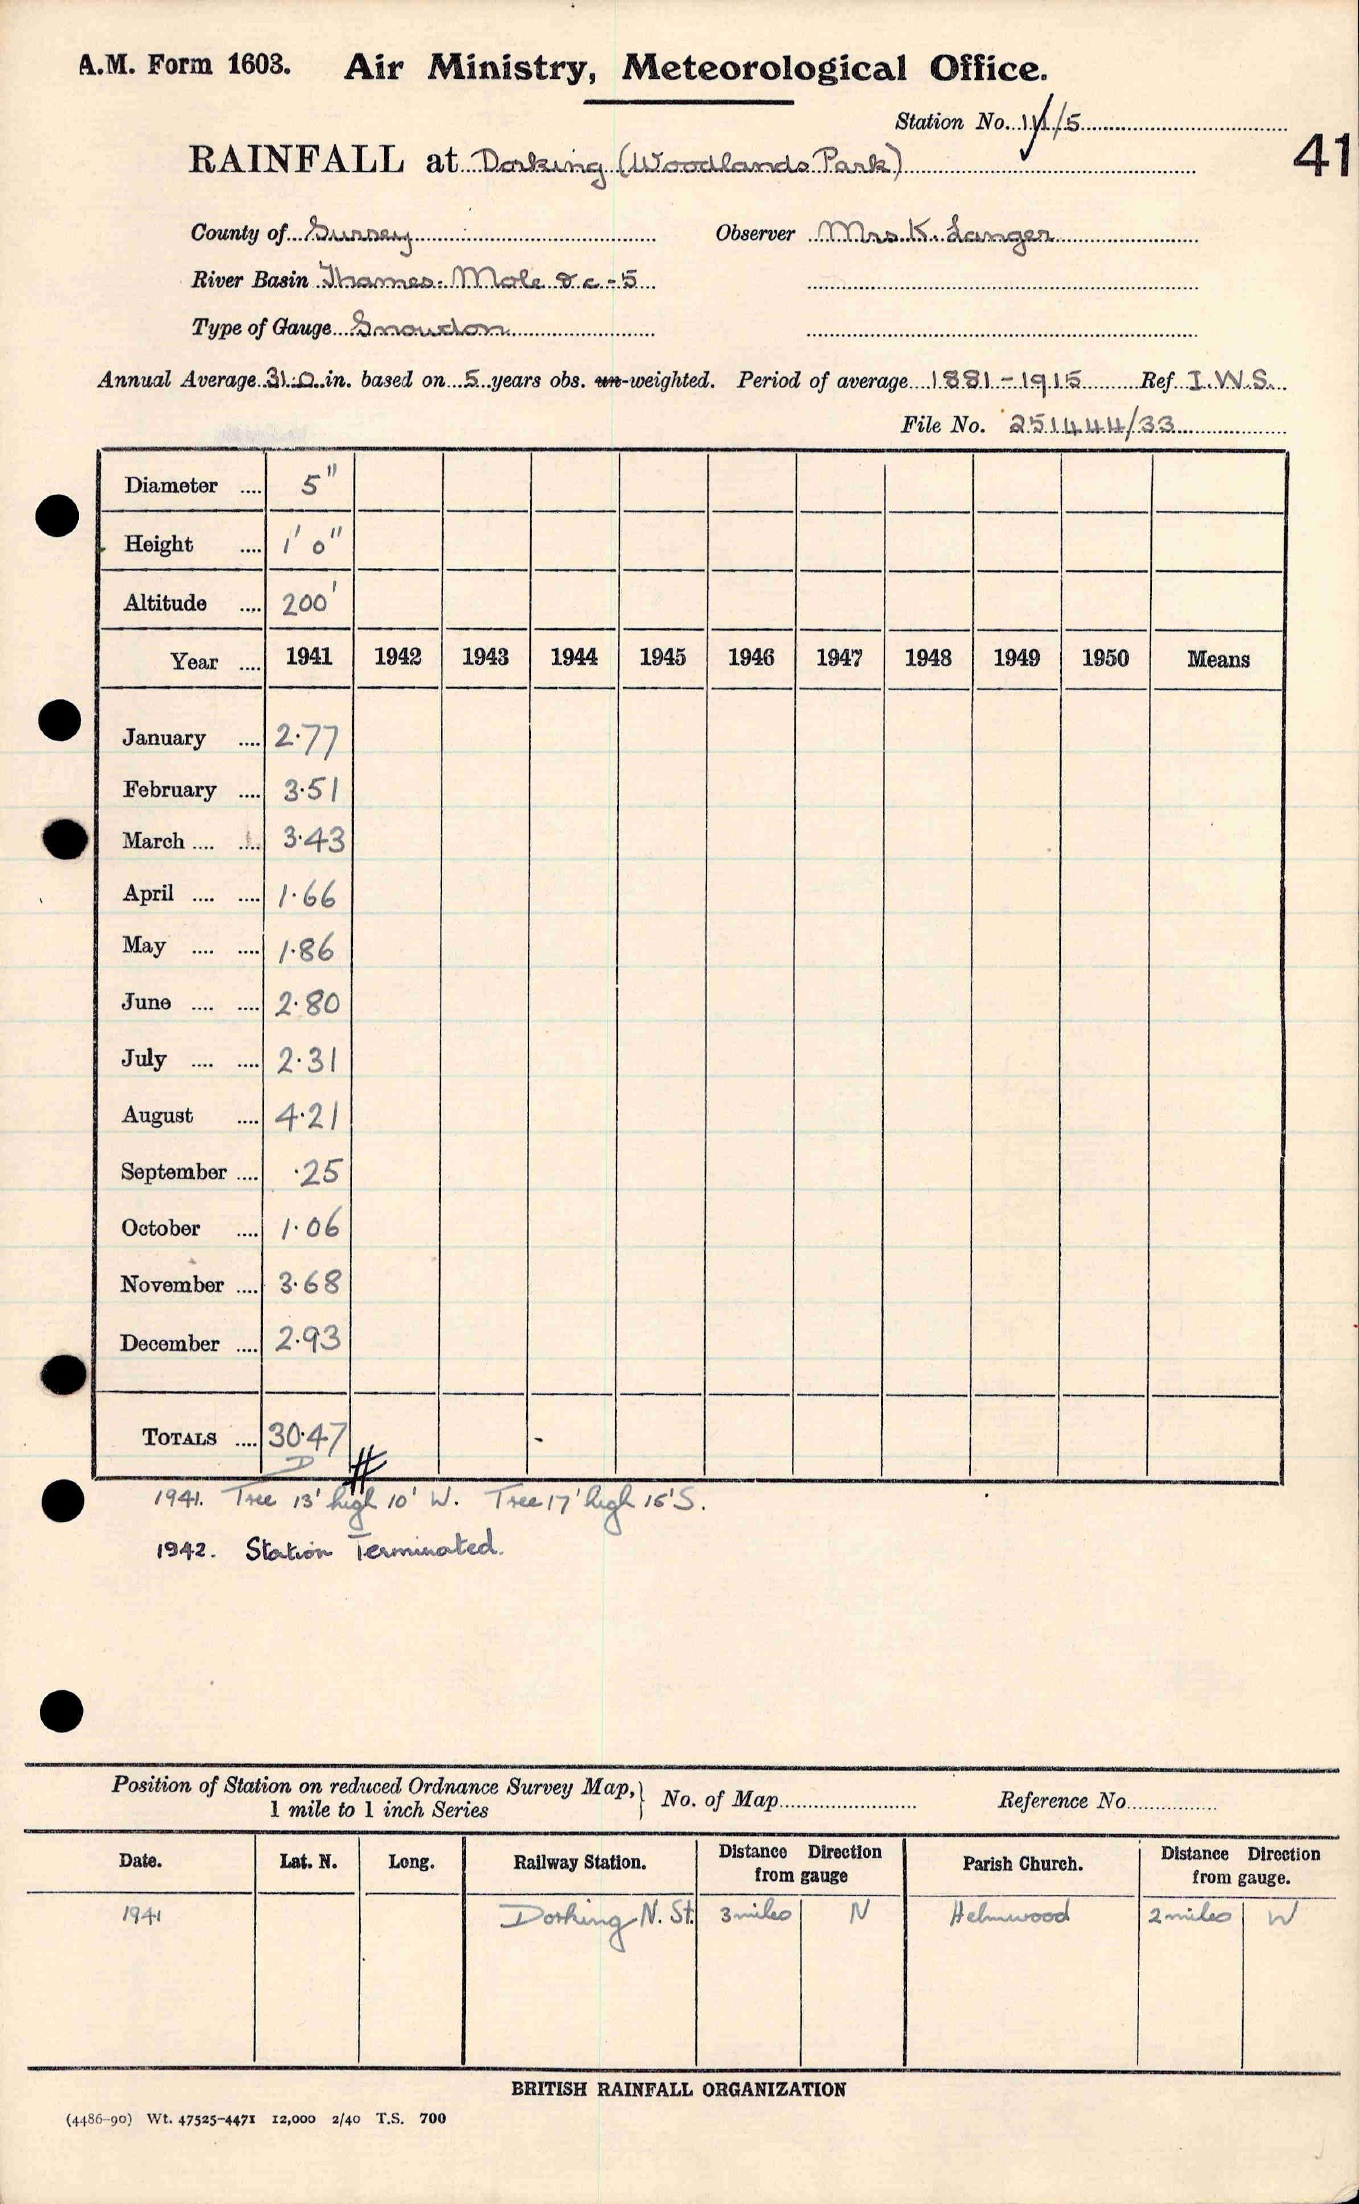 A.M. Form 1603. Air Ministry, Meteorological Office.
Station No. 141/5
41
RAINFALL at Dorking (Woodlands Park)
County of Surrey Observer Mrs K. Langer
River Basin Thames - Mole &c - 5
Type of Gauge Snowdon
Annual Average 31.0 in. based on 5 years obs. un-weighted. Period of average 1881-1915 Ref I.W.S.
File No. 251444/33
Diameter .... 5"
Height .... 1' 0"
Altitude .... 200'
Year .... 1941 1942 1943 1944 1945 1946 1947 1948 1949 1950 Means
January .... 2.77
February .... 3.51
March .... .... 3.43
April .... .... 1.66
May .... .... 1.86
June .... .... 2.80
July .... .... 2.31
August .... 4.21
September .... .25
October .... 1.06
November .... 3.68
December .... 2.93
TOTALS .... 30.47
D #
1941. Tree 13' high 10' W. Tree 17' high 15' S.
1942. Station Terminated.
Position of Station on reduced Ordnance Survey Map, } No. of Map Reference No.
1 mile to 1 inch Series
Date. Lat. N. Long. Railway Station. Distance Direction from gauge Parish Church. Distance Direction from gauge.
1941 Dorking N. St. 3 miles N Holmwood 2 miles W
BRITISH RAINFALL ORGANIZATION
(4486-90) Wt. 47525-4471 12,000 2/40 T.S. 700